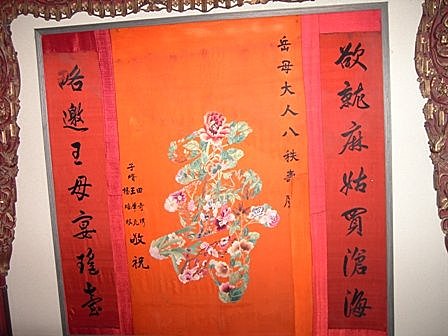 欲就麻姑買滄海
岳母大人八秩壽
壽
敬祝
略邀王母宴瑤臺